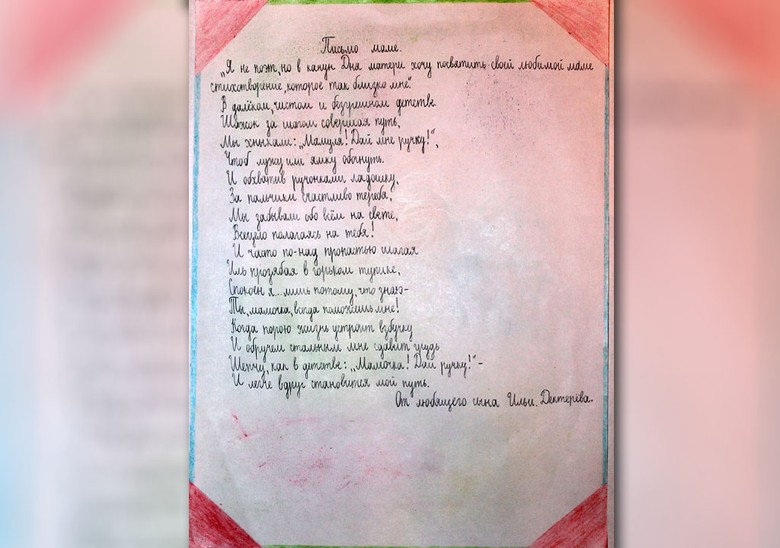 Письмо маме.
„Я не поэт, но в канун Дня матери хочу посвятить своей любимой маме
стихотворение, которое так близко мне".
В далёком, чистом и безгрешном детстве
Шажок за шагом совершая путь,
Мы хныкали: „Мамуля! Дай мне ручку!",
Чтоб лужу или ямку обогнуть.
И обхватив ручонками ладошку,
За пальчики счастливо теребя,
Мы забывали обо всём на свете,
Всецело полагаясь на тебя!
И часто по-над пропастью шагая
Иль прозябая в горьком тупике,
Спокоен я... лишь потому, что знаю-
Ты, мамочка, всегда поможешь мне!
Когда порою жизнь устроит взбучку
И обручем стальным мне сдавит грудь
Шепчу, как в детстве: „Мамочка! Дай ручку!"-
И легче вдруг становится мой путь.
От любящего сына Ильи Дектерева.